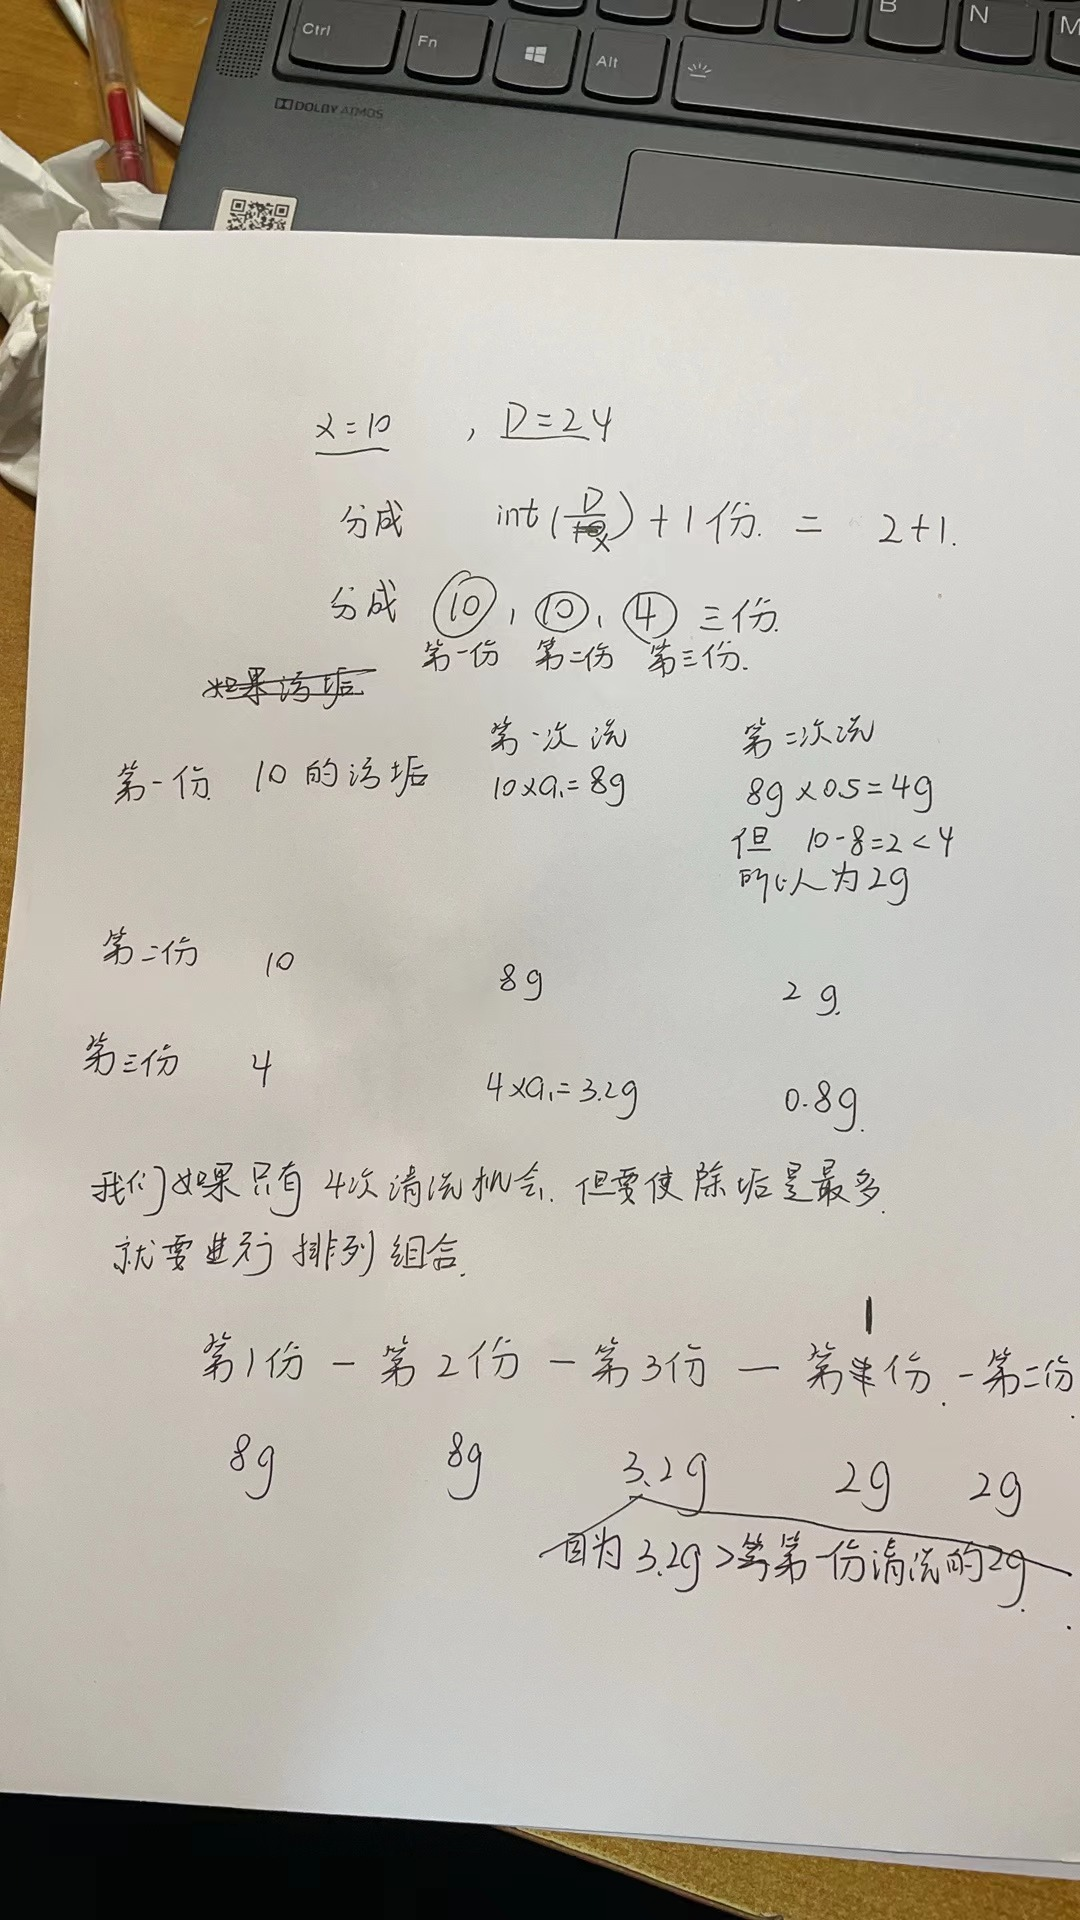 Ctrl Fn Alt B N M
DOLBY ATMOS
x=10 , D=24
分成 int(D/x)+1份. = 2+1.
分成 10, 10, 4 三份.
第一份 第二份 第三份.
如果污垢
第一次洗 第二次洗
第一份 10的污垢 10×a₁=8g 8g×0.5=4g
但 10-8=2<4
所以人为2g
第二份 10 8g 2g.
第三份 4 4×a₁=3.2g 0.8g.
我们如果只有4次清洗机会.但要使除垢是最多.
就要进行排列组合.
第1份 — 第2份 — 第3份 — 第1份. — 第二份.
8g 8g 3.2g 2g 2g
因为3.2g>第一份清洗的2g.